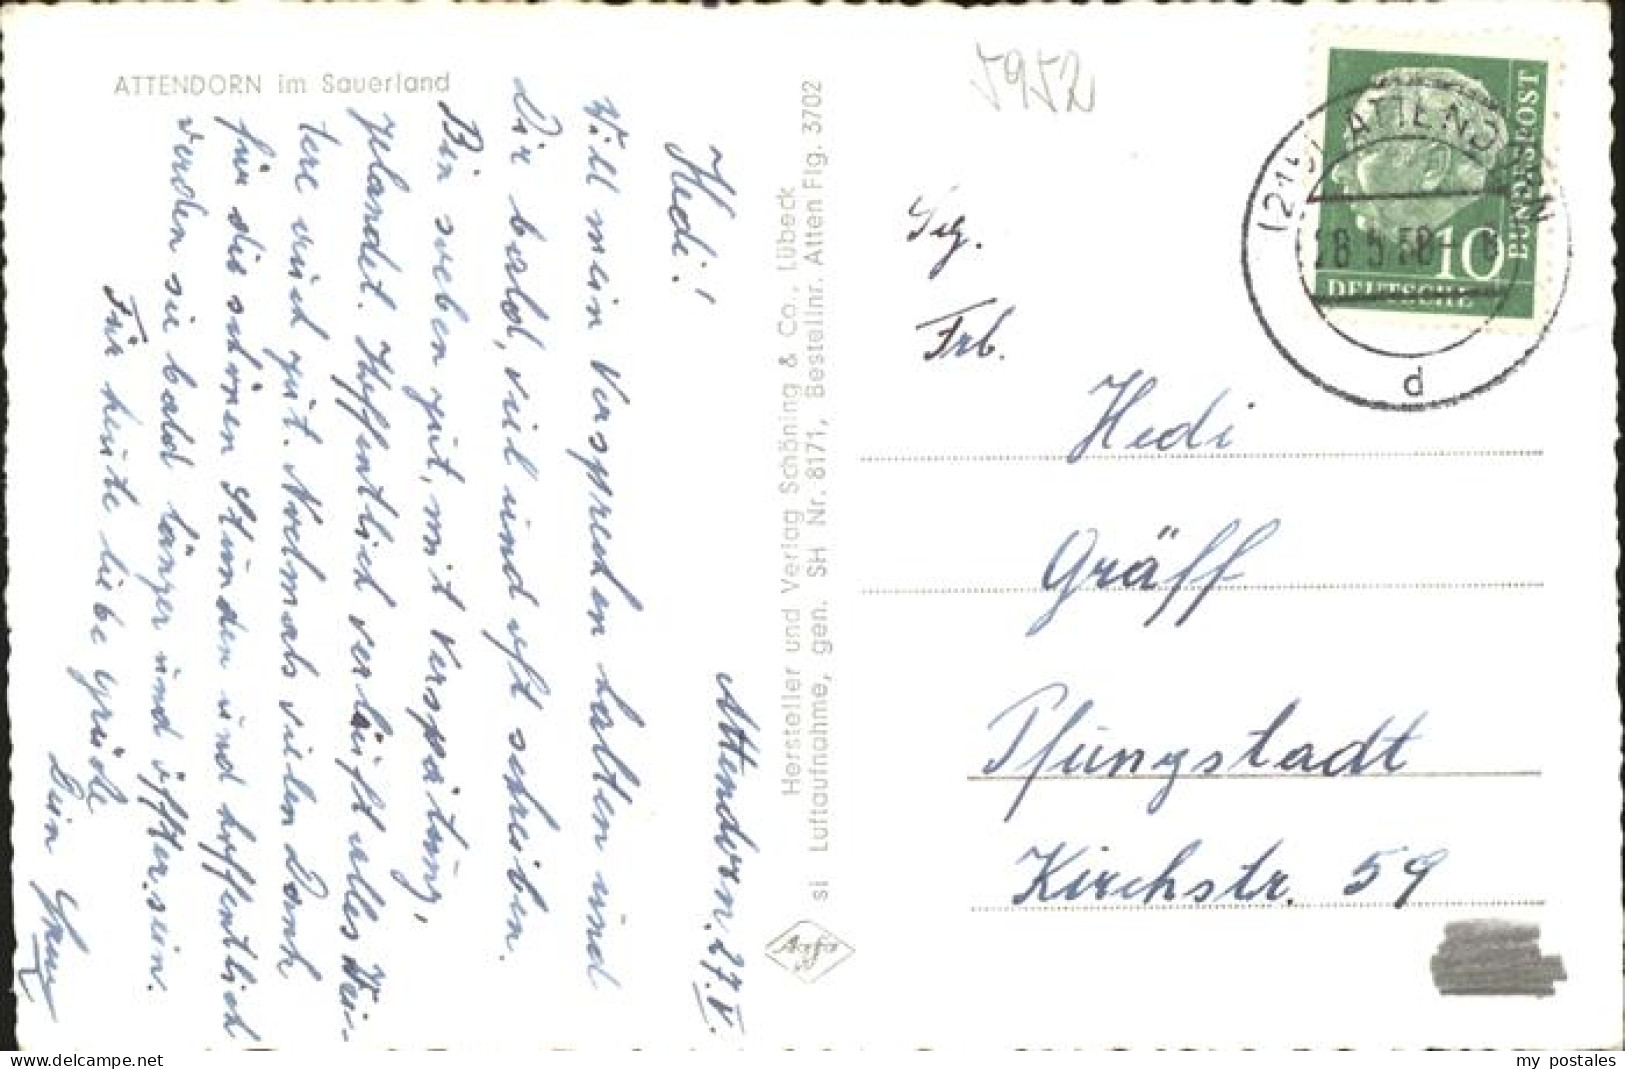 ATTENDORN im Sauerland
Attendorn, 27.V.
Hedi!
Will mein Versprechen halten und
Dir bald, viel und oft schreiben.
Bin soeben gut, mit Verspätung,
gelandet. Hoffentlich verläuft alles Wei-
tere auch gut. Nochmals vielen Dank
für die schönen Stunden und hoffentlich
werden sie bald länger und öfter sein.
Für heute liebe Grüße
Dein
Hersteller und Verlag Schöning & Co., Lübeck
si Luftaufnahme, gen. SH Nr. 8171, Bestellnr. Atten Flg. 3702
Agfa
5952
DEUTSCHE
BUNDESPOST
10
ATTENDORN
d
Frb.
Hedi
Gräff
Pfungstadt
Kirchstr. 59
my postales